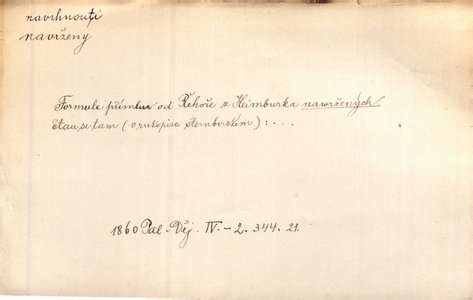 navrhnouti
navržený
Formule přímluv od Řehoře z Heimburka navržených
čtau se tam (v rukopise šternberském): ...
1860 Pal. Děj. IV.-2. 344. 21.